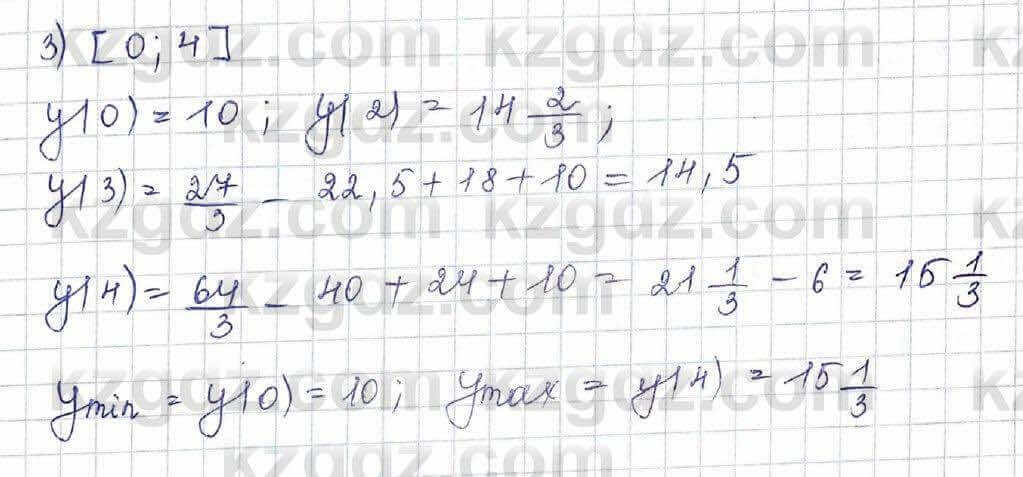 3) [0; 4]
y(0) = 10; y(2) = 14 2/3;
y(3) = 27/3 - 22,5 + 18 + 10 = 14,5
y(4) = 64/3 - 40 + 24 + 10 = 21 1/3 - 6 = 15 1/3
ymin = y(0) = 10; ymax = y(4) = 15 1/3
kzgdz.com